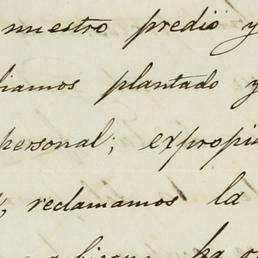 nuestro predio y
biamos plantado y
personal; expropi
reclamamos la